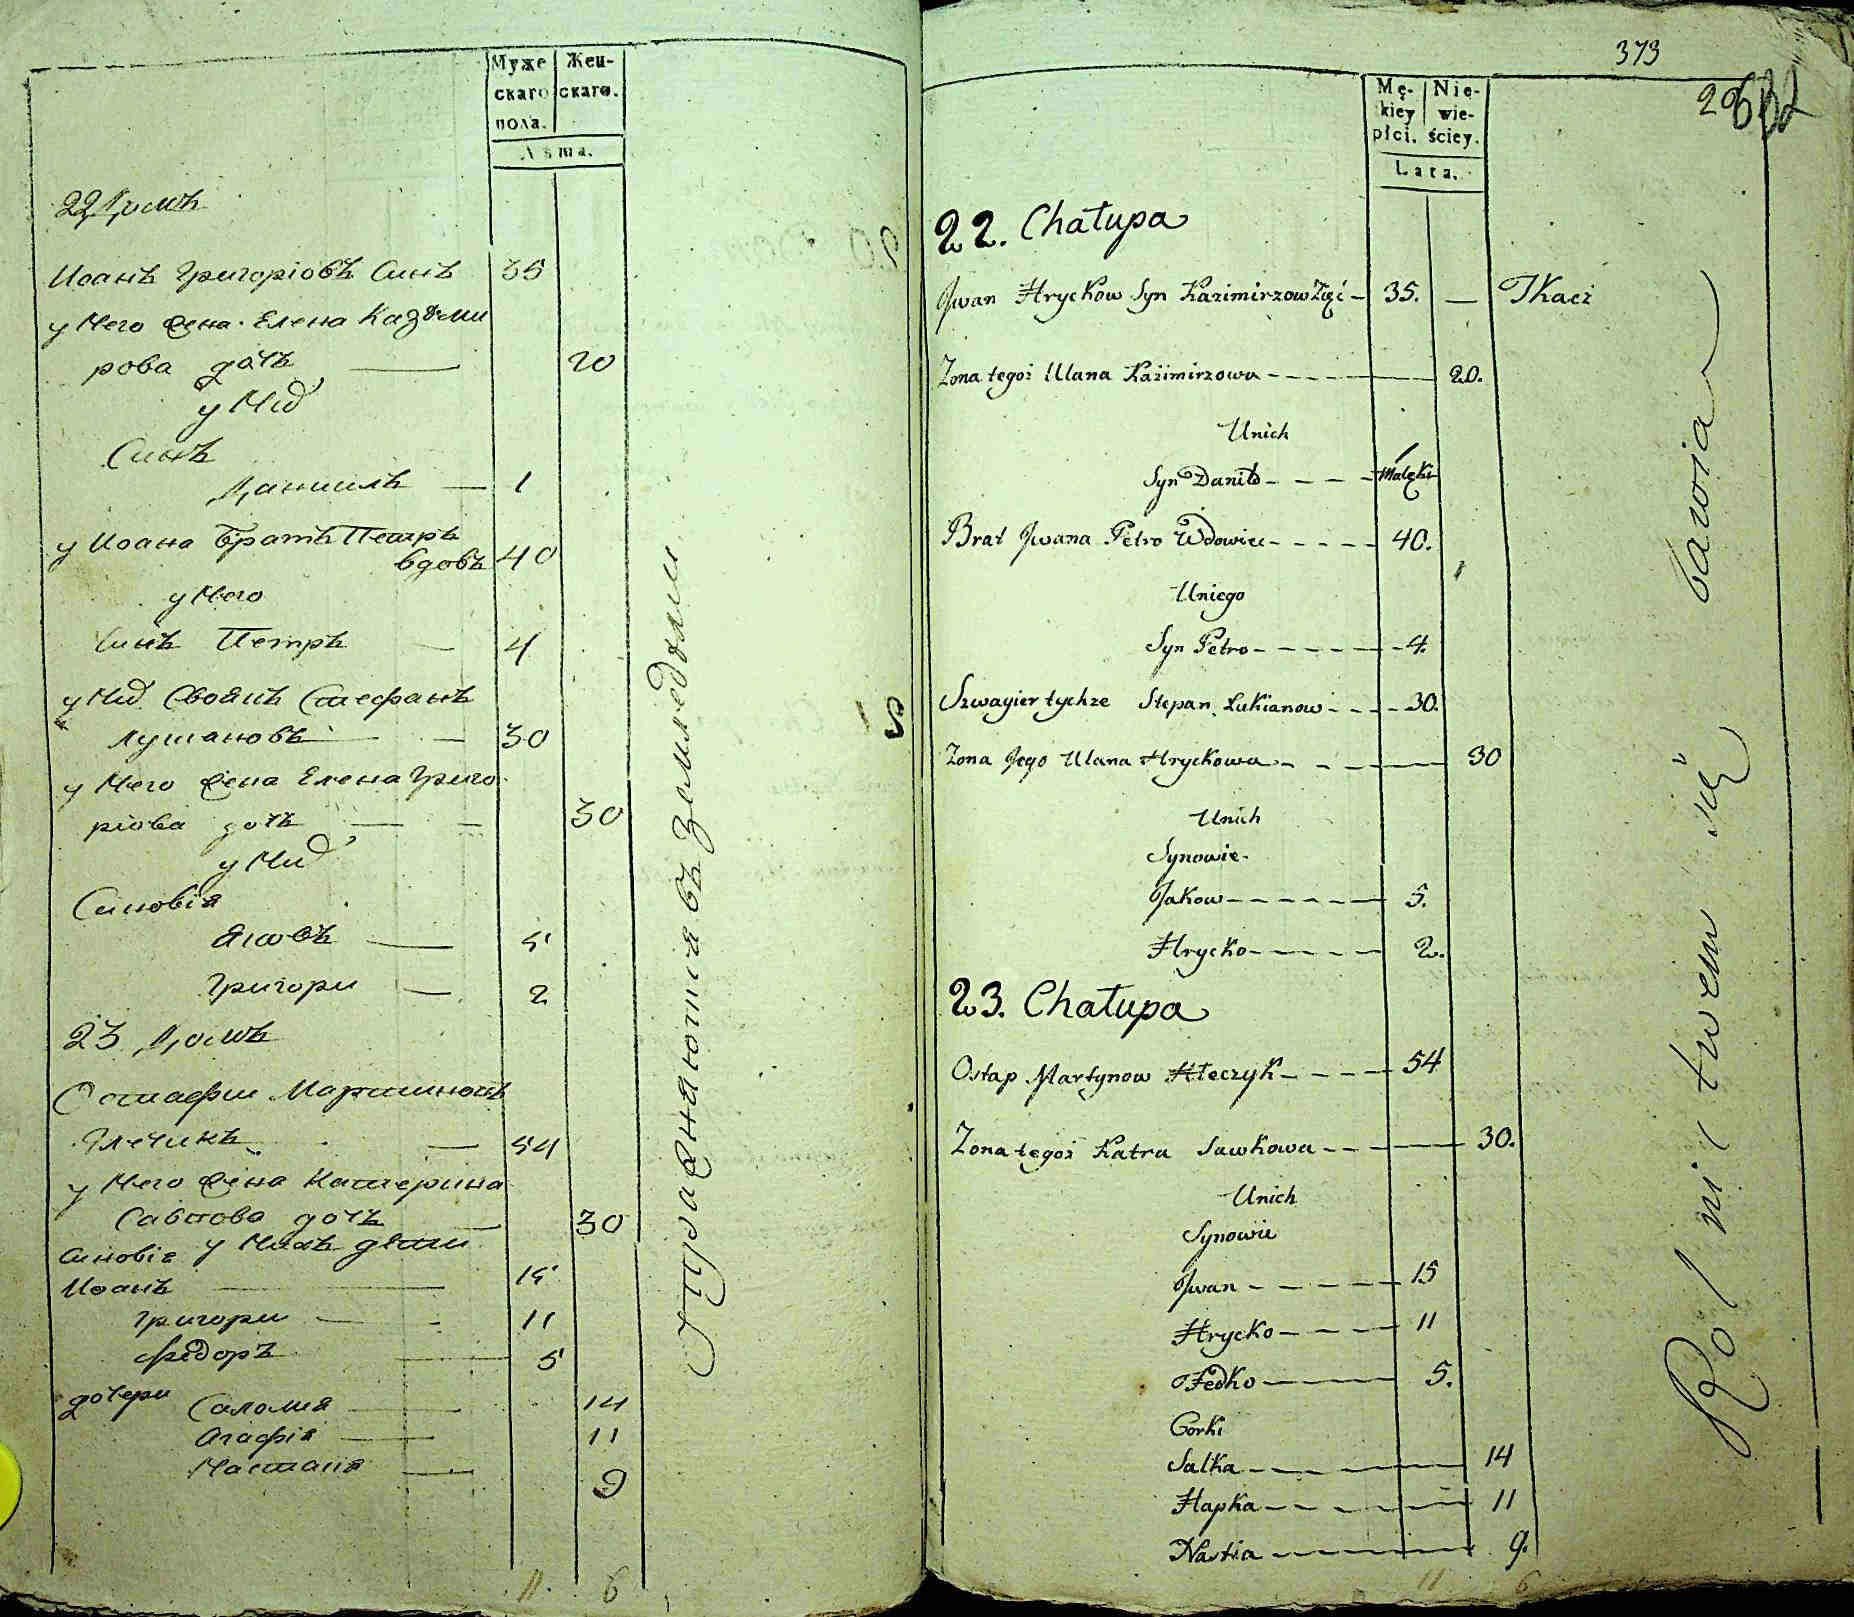 Муже Жен-
скаго скаго.
пола.
Лѣта.
22 Домъ
Иоанъ Григоріовъ Синъ 35
у Него жена Елена Казѣми
рова дочъ 20
у Них
Синъ
Даниилъ 1
у Иоана Братъ Петръ
вдовъ 40
у Него
Синъ Петръ 4
у Них Своякъ Стефанъ
Лукановъ 30
у Него жена Елена Григо
ріова дочъ 30
у Них
Синовія
Яковъ 5
Григори 2
23 Домъ
Остафи Мартиновъ
Глечикъ 54
у Него жена Катерина
Савкова дочъ 30
Синовія у Нихъ дѣти
Иоанъ 15
Григори 11
Федоръ 5
дочери Саломия 14
Агафія 11
Настасія 9
Упражняются въ Замледѣлии
11 6
373
Mę- Nie-
kiey wie-
płci. ściey.
Lata.
22. Chałupa
Jwan Hryckow Syn Kazimirzow Zięć 35. Tkacz
Zona tegoż Ulana Kazimirzowa 20.
Unich
Syn Daniło Malęki
Brat Jwana Petro Wdowiec 40.
Uniego
Syn Petro 4.
Szwagier tychze Stepan Łukianow 30.
Zona Jego Ulana Hryckowa 30
Unich
Synowie
Jakow 5.
Hrycko 2.
23. Chałupa
Ostap Martynow Hłeczyk 54
Zona tegoż Katra Sawkowa 30.
Unich
Synowie
Jwan 15
Hrycko 11
Fedko 5.
Corki
Salka 14
Hapka 11
Nastia 9.
Rolnictwem się bawia
11 6